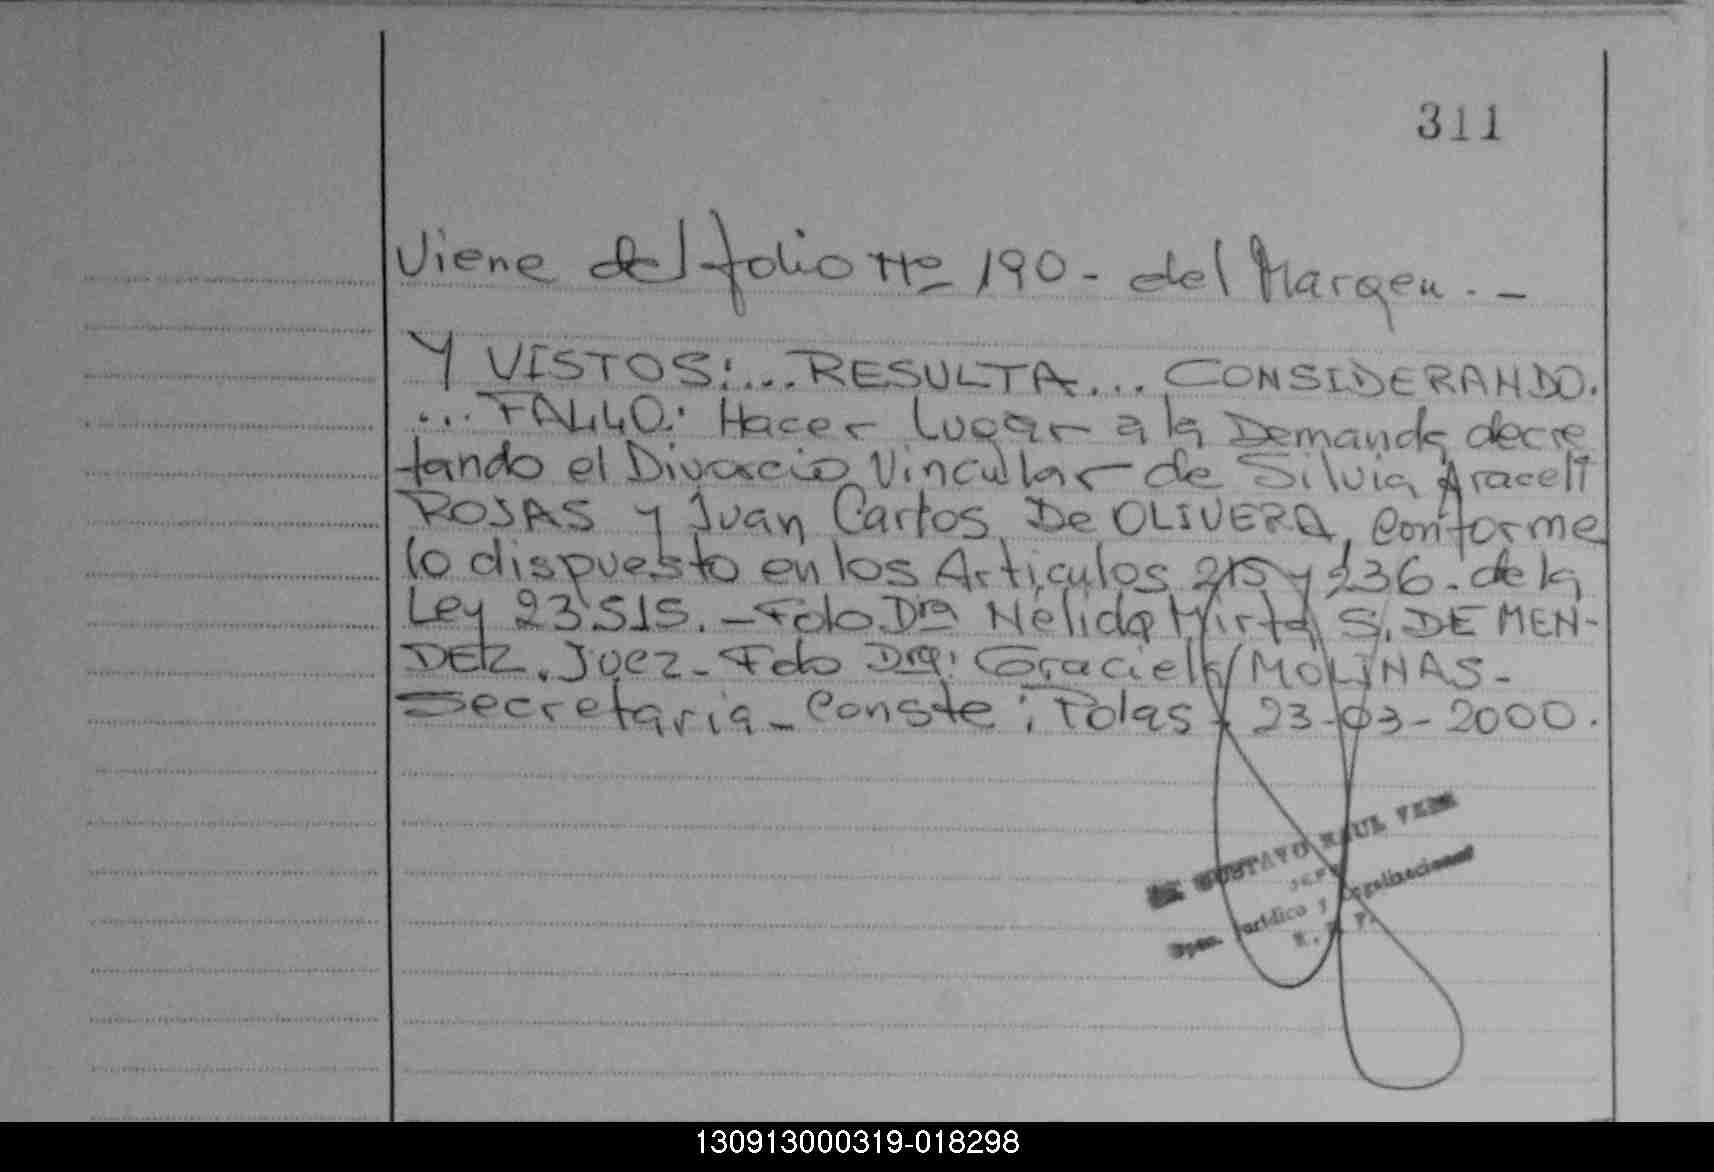 311
Viene del folio Nº 190- del Margen.-
Y VISTOS:... RESULTA... CONSIDERANDO.
...FALLO: Hacer lugar a la Demanda, decre
tando el Divorcio Vincular de Silvia Araceli
ROJAS y Juan Carlos De OLIVERA, conforme
lo dispuesto en los Articulos 215 y 236. de la
Ley 23.515.- Fdo Dra Nélida Mirta S. DE MEN-
DEZ. Juez- Fdo Dra: Graciela MOLINAS-
Secretaria- Conste: Pdas- 23-03-2000.
GUSTAVO RAUL
JEFE
Juridico y
130913000319-018298